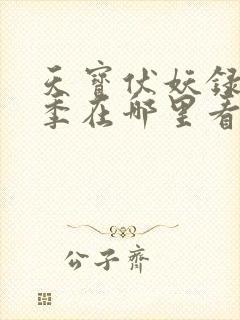 天寶伏妖録
季在哪里看
公子齊